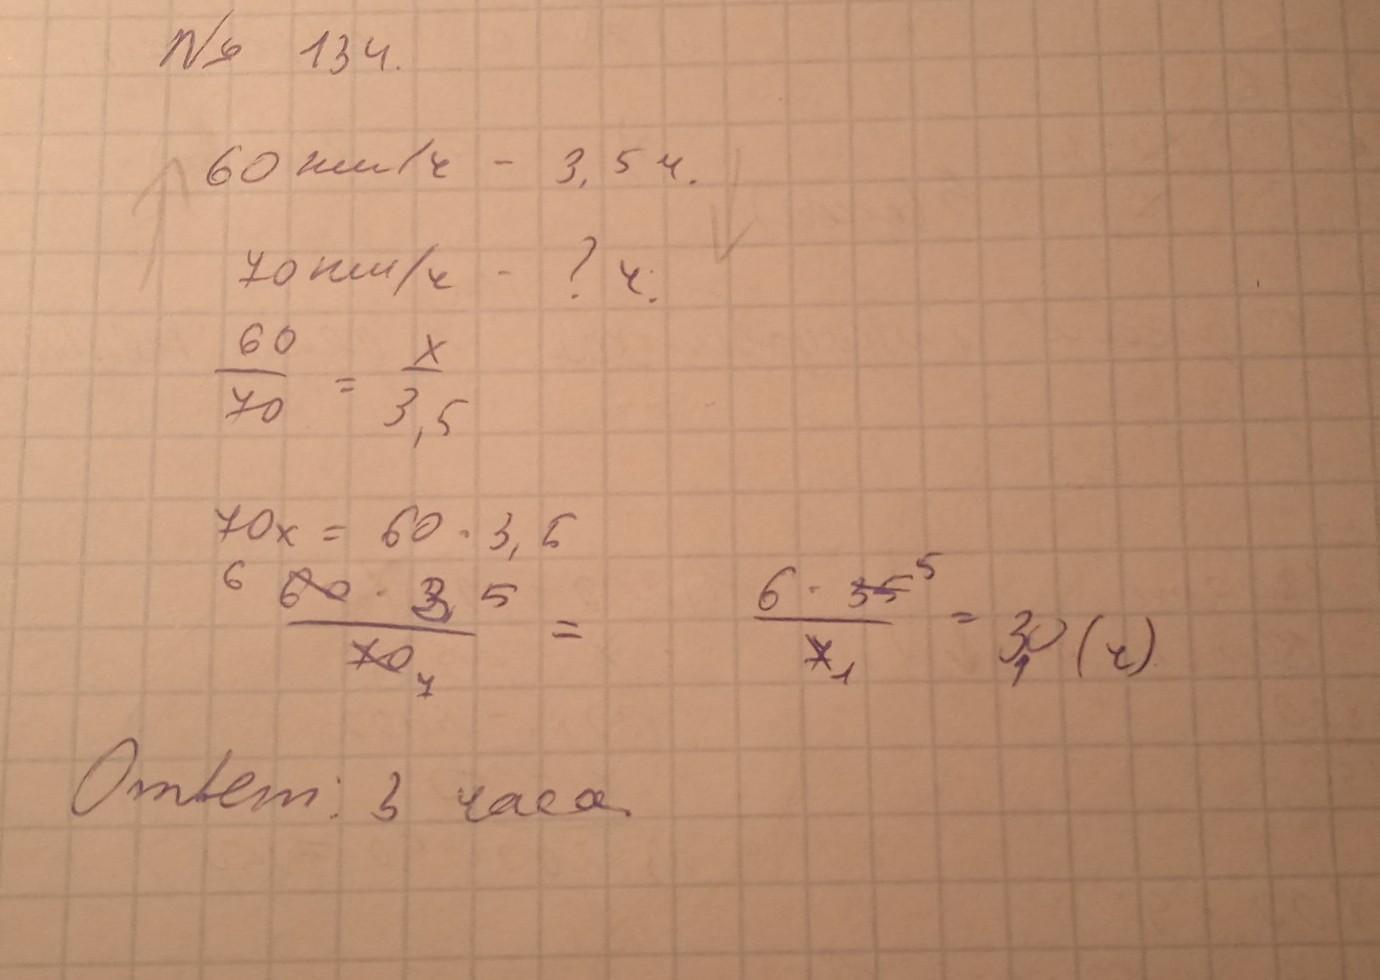 № 134.
60 км/ч - 3,5 ч.
70 км/ч - ? ч.
60/70 = x/3,5
70x = 60 · 3,5
6 60 · 3,5 / 70 7 = 6 · 35 5 / 7 1 = 3,0 (ч)
Ответ: 3 часа